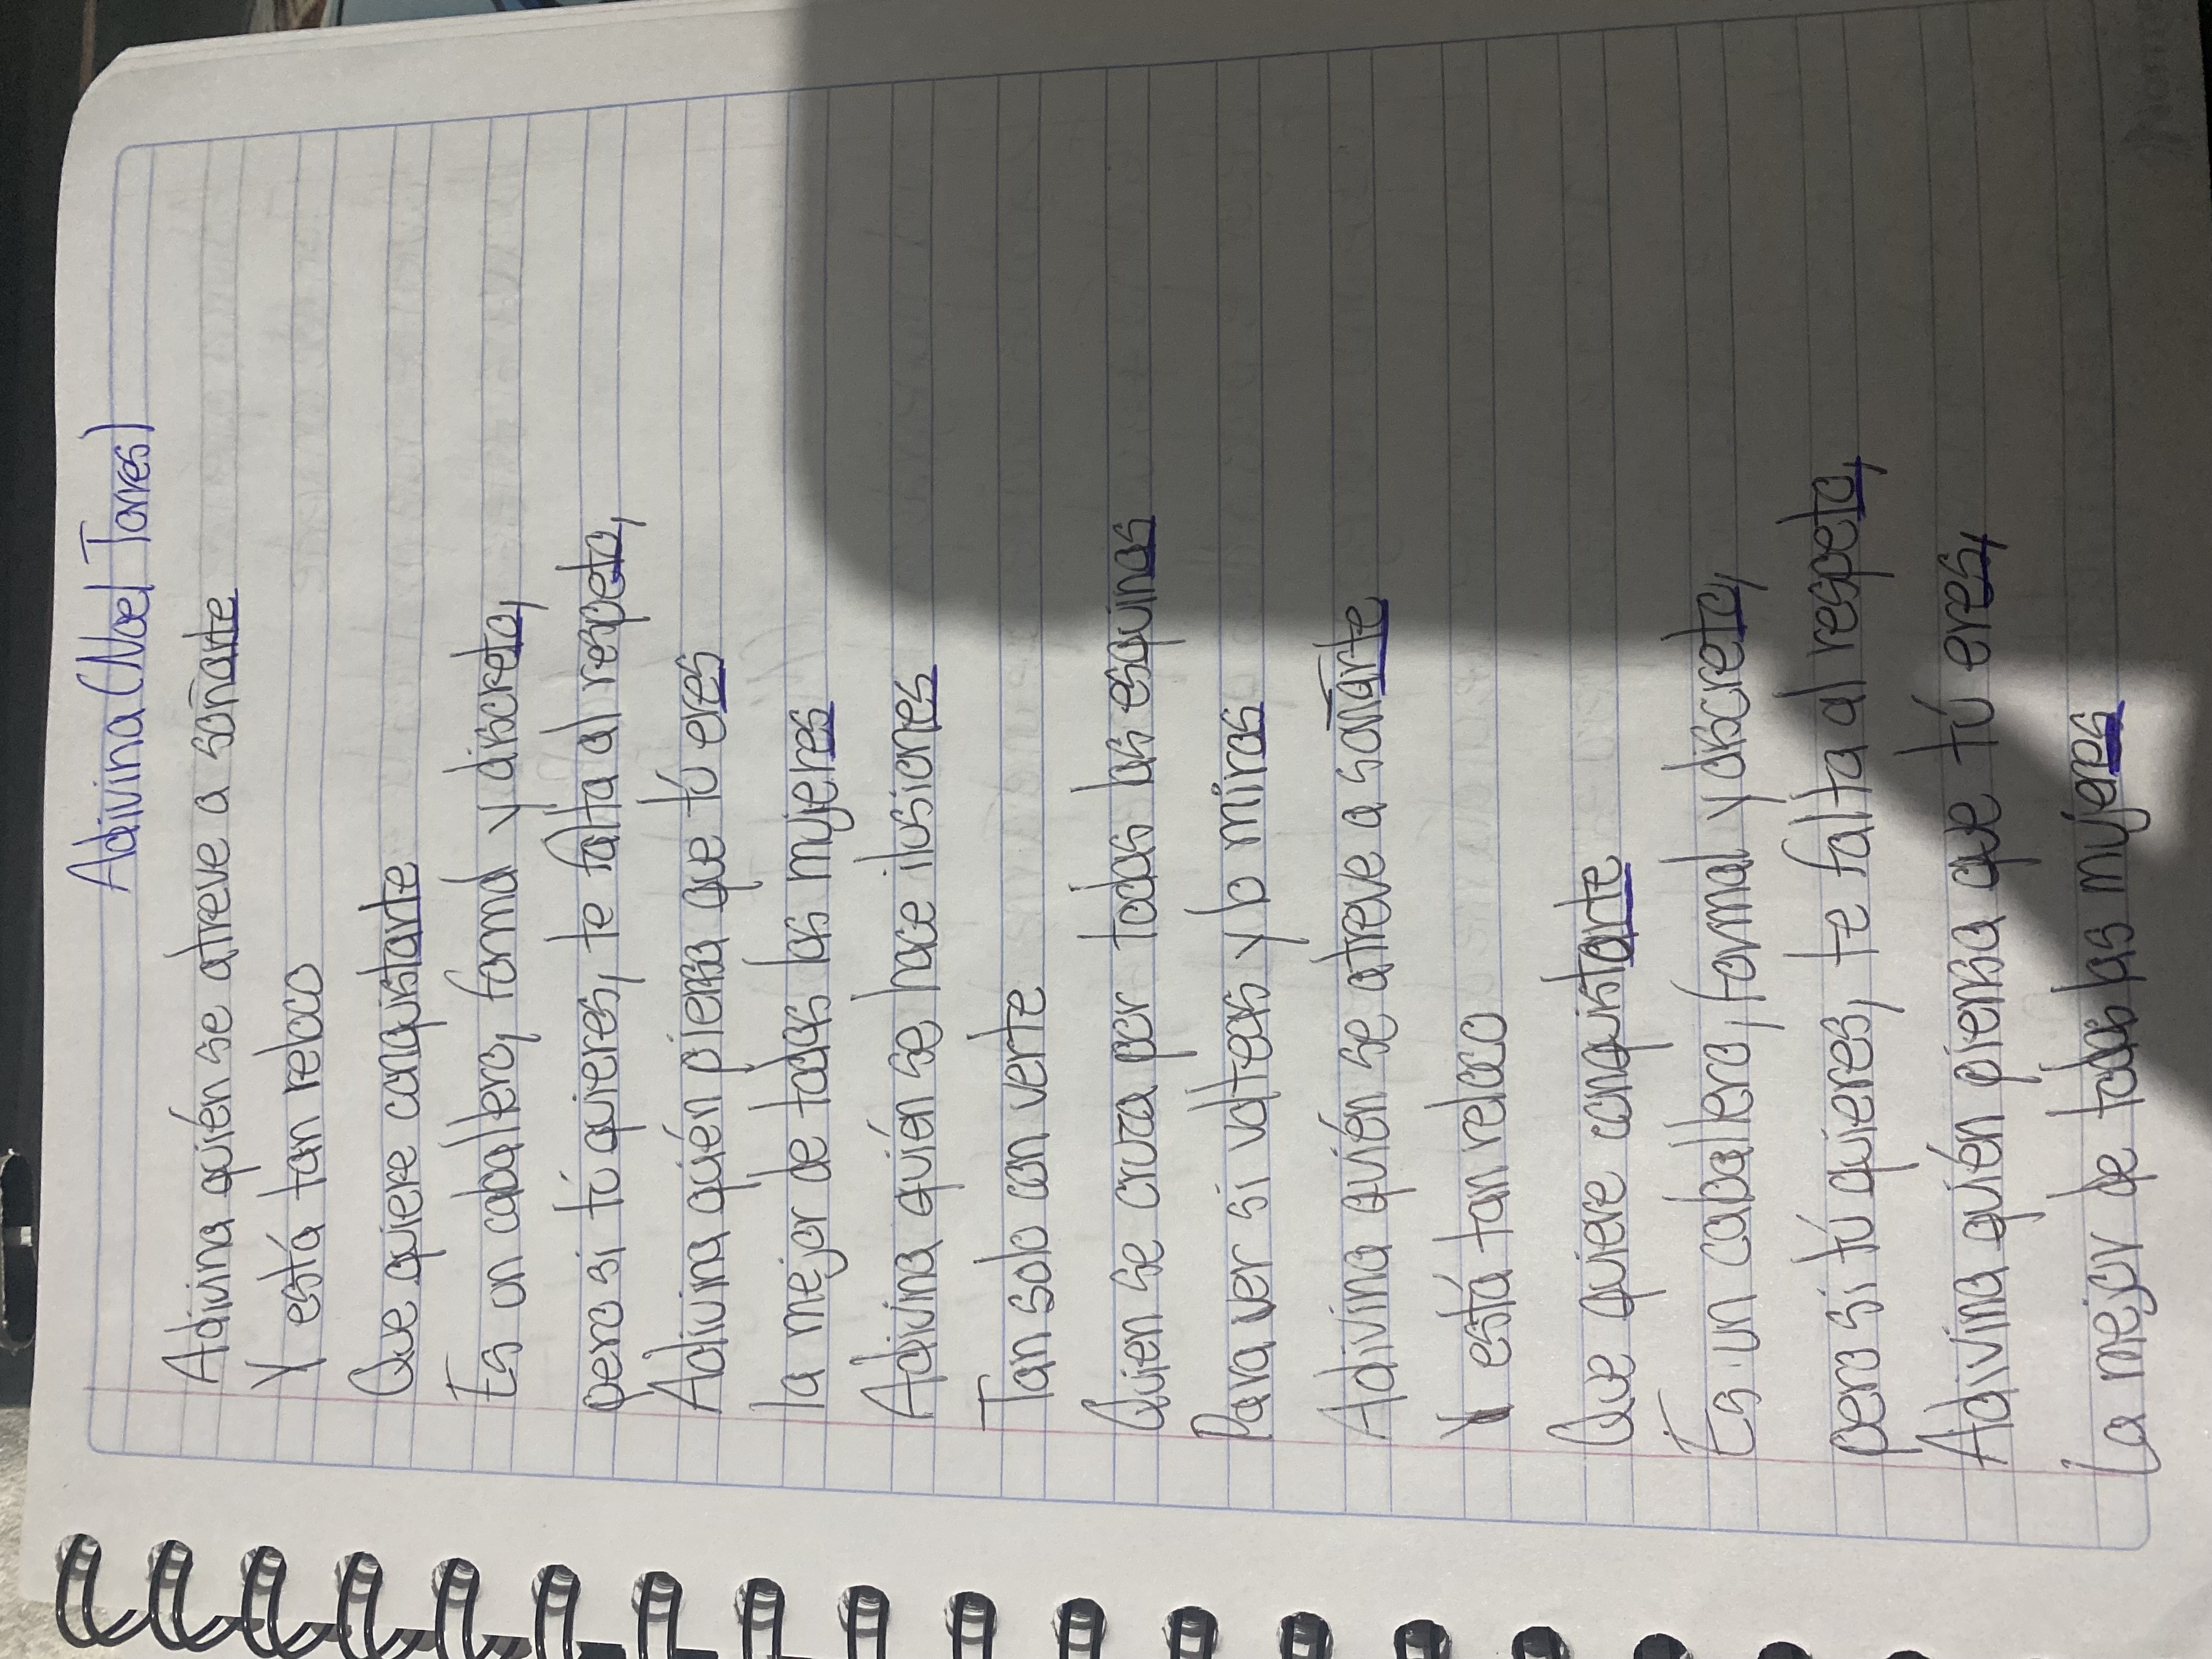 Adivina (Noel Torres)
Adivina quién se atreve a soñarte
Y está tan reloco
Que quiere conquistarte
Es un caballero, formal y discreto,
pero si tú quieres, te falta al respeto,
Adivina quién piensa que tú eres
la mejor de todas las mujeres
Adivina quién se hace ilusiones
Tan solo con verte
Quien se cruza por todas las esquinas
Para ver si volteas y lo miras
Adivina quién se atreve a soñarte
Y está tan reloco
Que quiere conquistarte
Es un caballero, formal y discreto,
pero si tú quieres, te falta al respeto,
Adivina quién piensa que tú eres,
La mejor de todas las mujeres